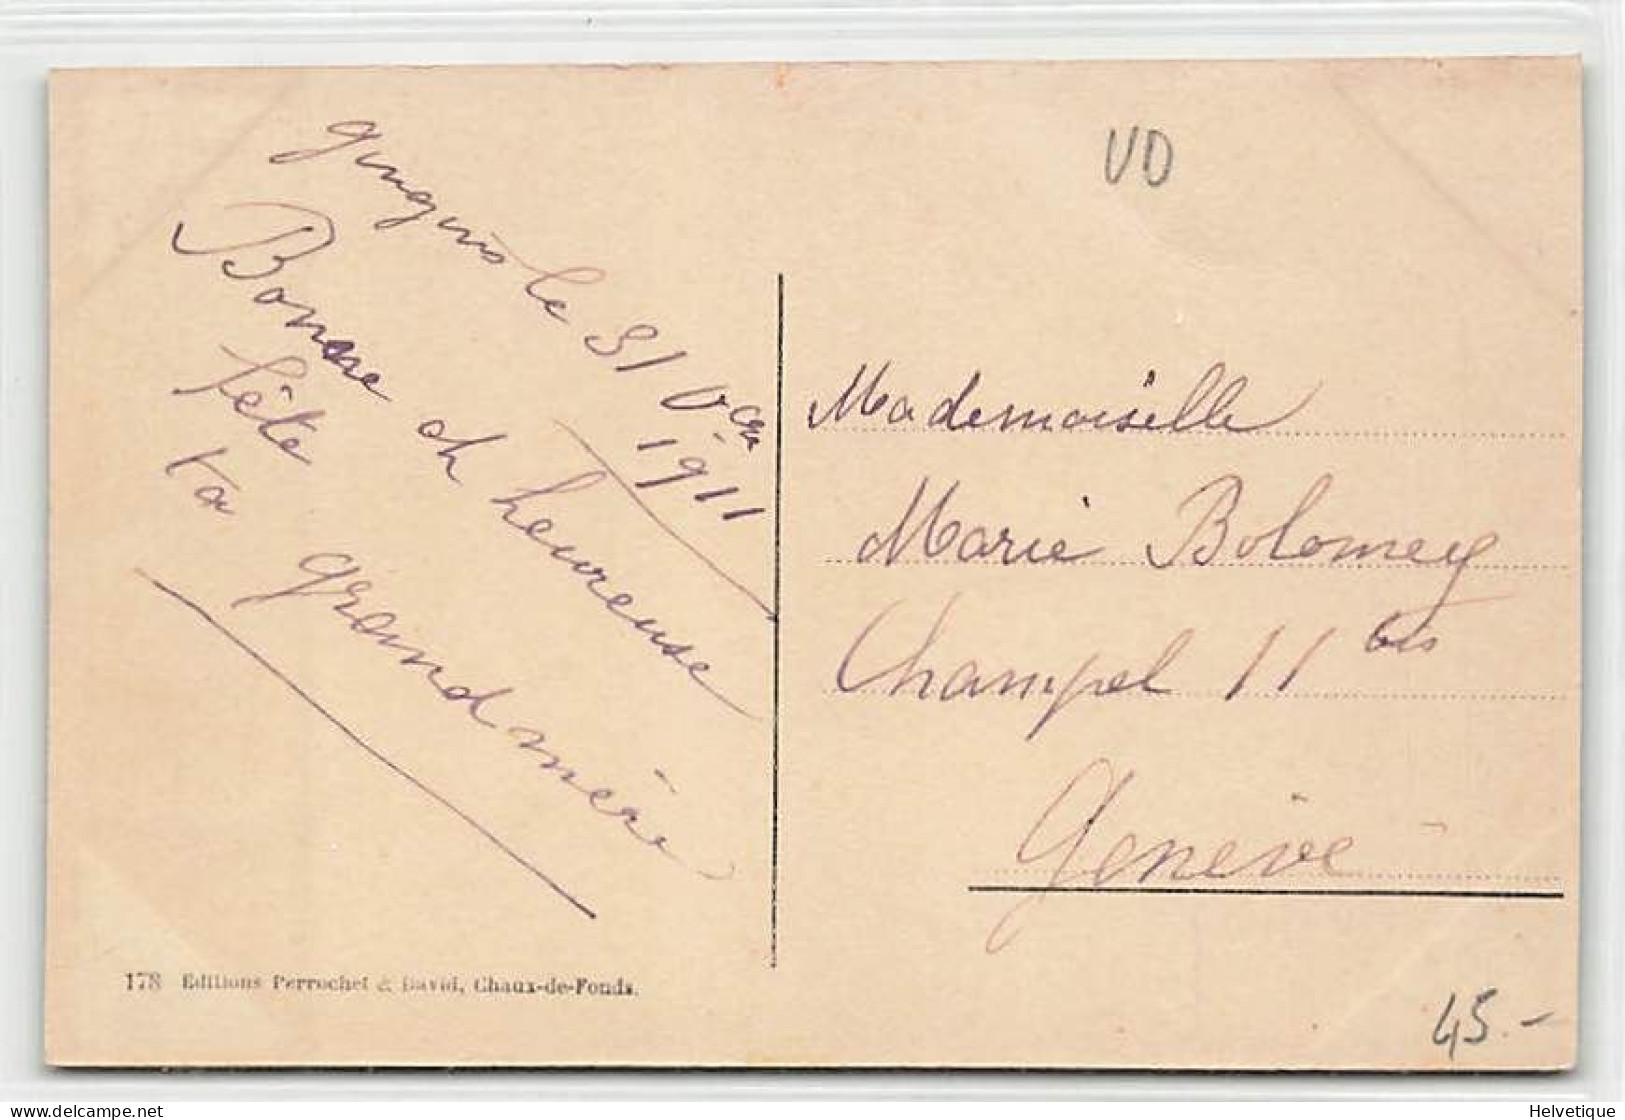 Gingins le 31 Xbre
1911
Bonne et heureuse
fête
ta grand mère
VD
Mademoiselle
Marie Bolomey
Champel 11 bis
Genève
178 Editions Perrochet & David, Chaux-de-Fonds.
45.-
Helvetique